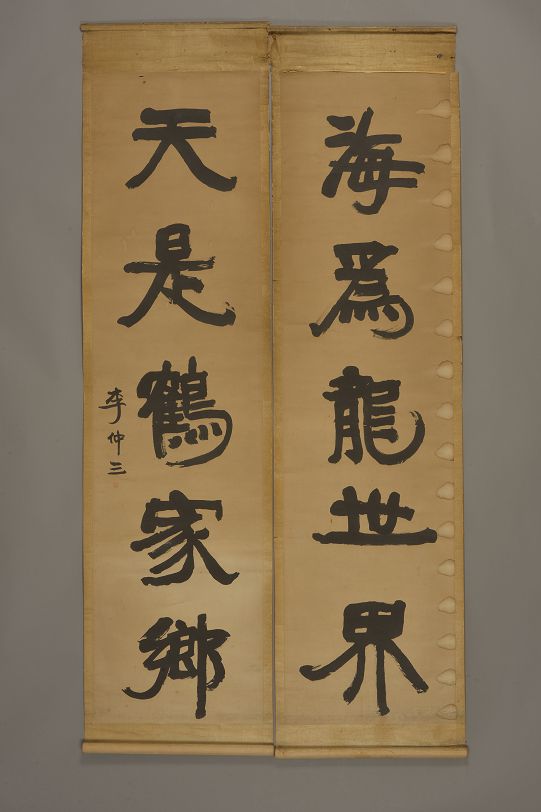 海為龍世界
天是鶴家鄉
李仲三